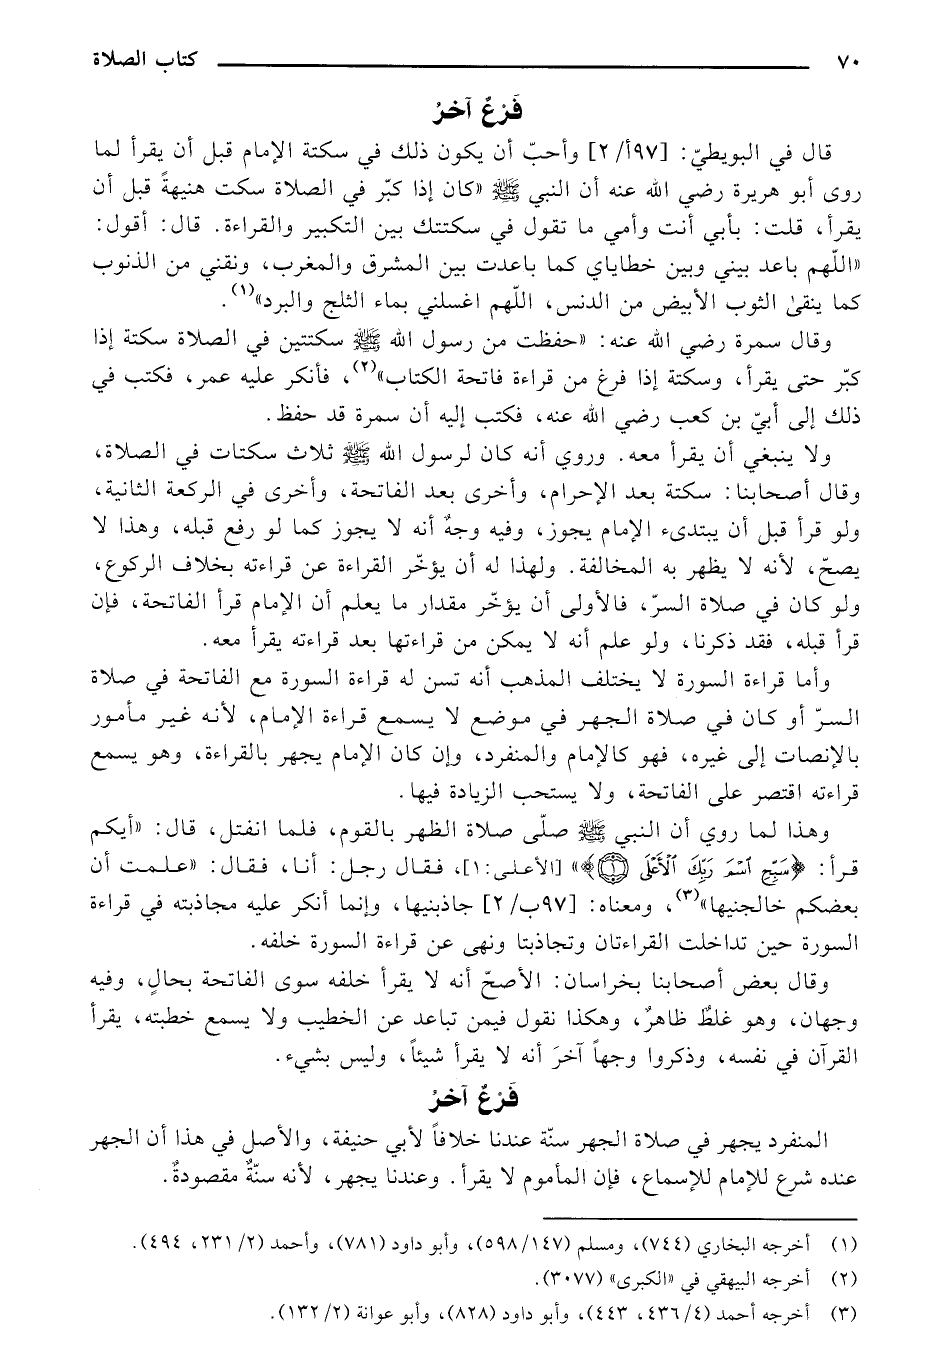 ٧٠ كتاب الصلاة
فَرْعٌ آخرُ
قال في البويطيّ: [٩٧أ/ ٢] وأحبّ أن يكون ذلك في سكتة الإمام قبل أن يقرأ لما
روى أبو هريرة رضي الله عنه أن النبي ﷺ «كان إذا كبّر في الصلاة سكت هنيهةً قبل أن
يقرأ، قلت: بأبي أنت وأمي ما تقول في سكتتك بين التكبير والقراءة. قال: أقول:
«اللّهم باعد بيني وبين خطاياي كما باعدت بين المشرق والمغرب، ونقني من الذنوب
كما ينقىٰ الثوب الأبيض من الدنس، اللّهم اغسلني بماء الثلج والبرد»(١).
وقال سمرة رضي الله عنه: «حفظت من رسول الله ﷺ سكتتين في الصلاة سكتة إذا
كبّر حتى يقرأ، وسكتة إذا فرغ من قراءة فاتحة الكتاب»(٢)، فأنكر عليه عمر، فكتب في
ذلك إلى أبيّ بن كعب رضي الله عنه، فكتب إليه أن سمرة قد حفظ.
ولا ينبغي أن يقرأ معه. وروي أنه كان لرسول الله ﷺ ثلاث سكتات في الصلاة،
وقال أصحابنا: سكتة بعد الإحرام، وأخرى بعد الفاتحة، وأخرى في الركعة الثانية،
ولو قرأ قبل أن يبتدىء الإمام يجوز، وفيه وجهٌ أنه لا يجوز كما لو رفع قبله، وهذا لا
يصحّ، لأنه لا يظهر به المخالفة. ولهذا له أن يؤخّر القراءة عن قراءته بخلاف الركوع،
ولو كان في صلاة السرّ، فالأولى أن يؤخّر مقدار ما يعلم أن الإمام قرأ الفاتحة، فإن
قرأ قبله، فقد ذكرنا، ولو علم أنه لا يمكن من قراءتها بعد قراءته يقرأ معه.
وأما قراءة السورة لا يختلف المذهب أنه تسن له قراءة السورة مع الفاتحة في صلاة
السرّ أو كان في صلاة الجهر في موضع لا يسمع قراءة الإمام، لأنه غير مأمور
بالإنصات إلى غيره، فهو كالإمام والمنفرد، وإن كان الإمام يجهر بالقراءة، وهو يسمع
قراءته اقتصر على الفاتحة، ولا يستحب الزيادة فيها.
وهذا لما روي أن النبي ﷺ صلّى صلاة الظهر بالقوم، فلما انفتل، قال: «أيكم
قرأ: ﴿سَبِّحِ ٱسْمَ رَبِّكَ ٱلْأَعْلَى ۝١﴾» [الأعلى: ١]، فقال رجل: أنا، فقال: «علمت أن
بعضكم خالجنيها»(٣)، ومعناه: [٩٧ب/ ٢] جاذبنيها، وإنما أنكر عليه مجاذبته في قراءة
السورة حين تداخلت القراءتان وتجاذبتا ونهى عن قراءة السورة خلفه.
وقال بعض أصحابنا بخراسان: الأصحّ أنه لا يقرأ خلفه سوى الفاتحة بحالٍ، وفيه
وجهان، وهو غلطٌ ظاهرٌ، وهكذا نقول فيمن تباعد عن الخطيب ولا يسمع خطبته، يقرأ
القرآن في نفسه، وذكروا وجهاً آخرَ أنه لا يقرأ شيئاً، وليس بشيء.
فَرْعٌ آخرُ
المنفرد يجهر في صلاة الجهر سنّة عندنا خلافاً لأبي حنيفة، والأصل في هذا أن الجهر
عنده شرع للإمام للإسماع، فإن المأموم لا يقرأ. وعندنا يجهر، لأنه سنّةٌ مقصودةٌ.
(١) أخرجه البخاري (٧٤٤)، ومسلم (١٤٧/ ٥٩٨)، وأبو داود (٧٨١)، وأحمد (٢/ ٢٣١، ٤٩٤).
(٢) أخرجه البيهقي في «الكبرى» (٣٠٧٧).
(٣) أخرجه أحمد (٤/ ٤٣٦، ٤٤٣)، وأبو داود (٨٢٨)، وأبو عوانة (٢/ ١٣٢).